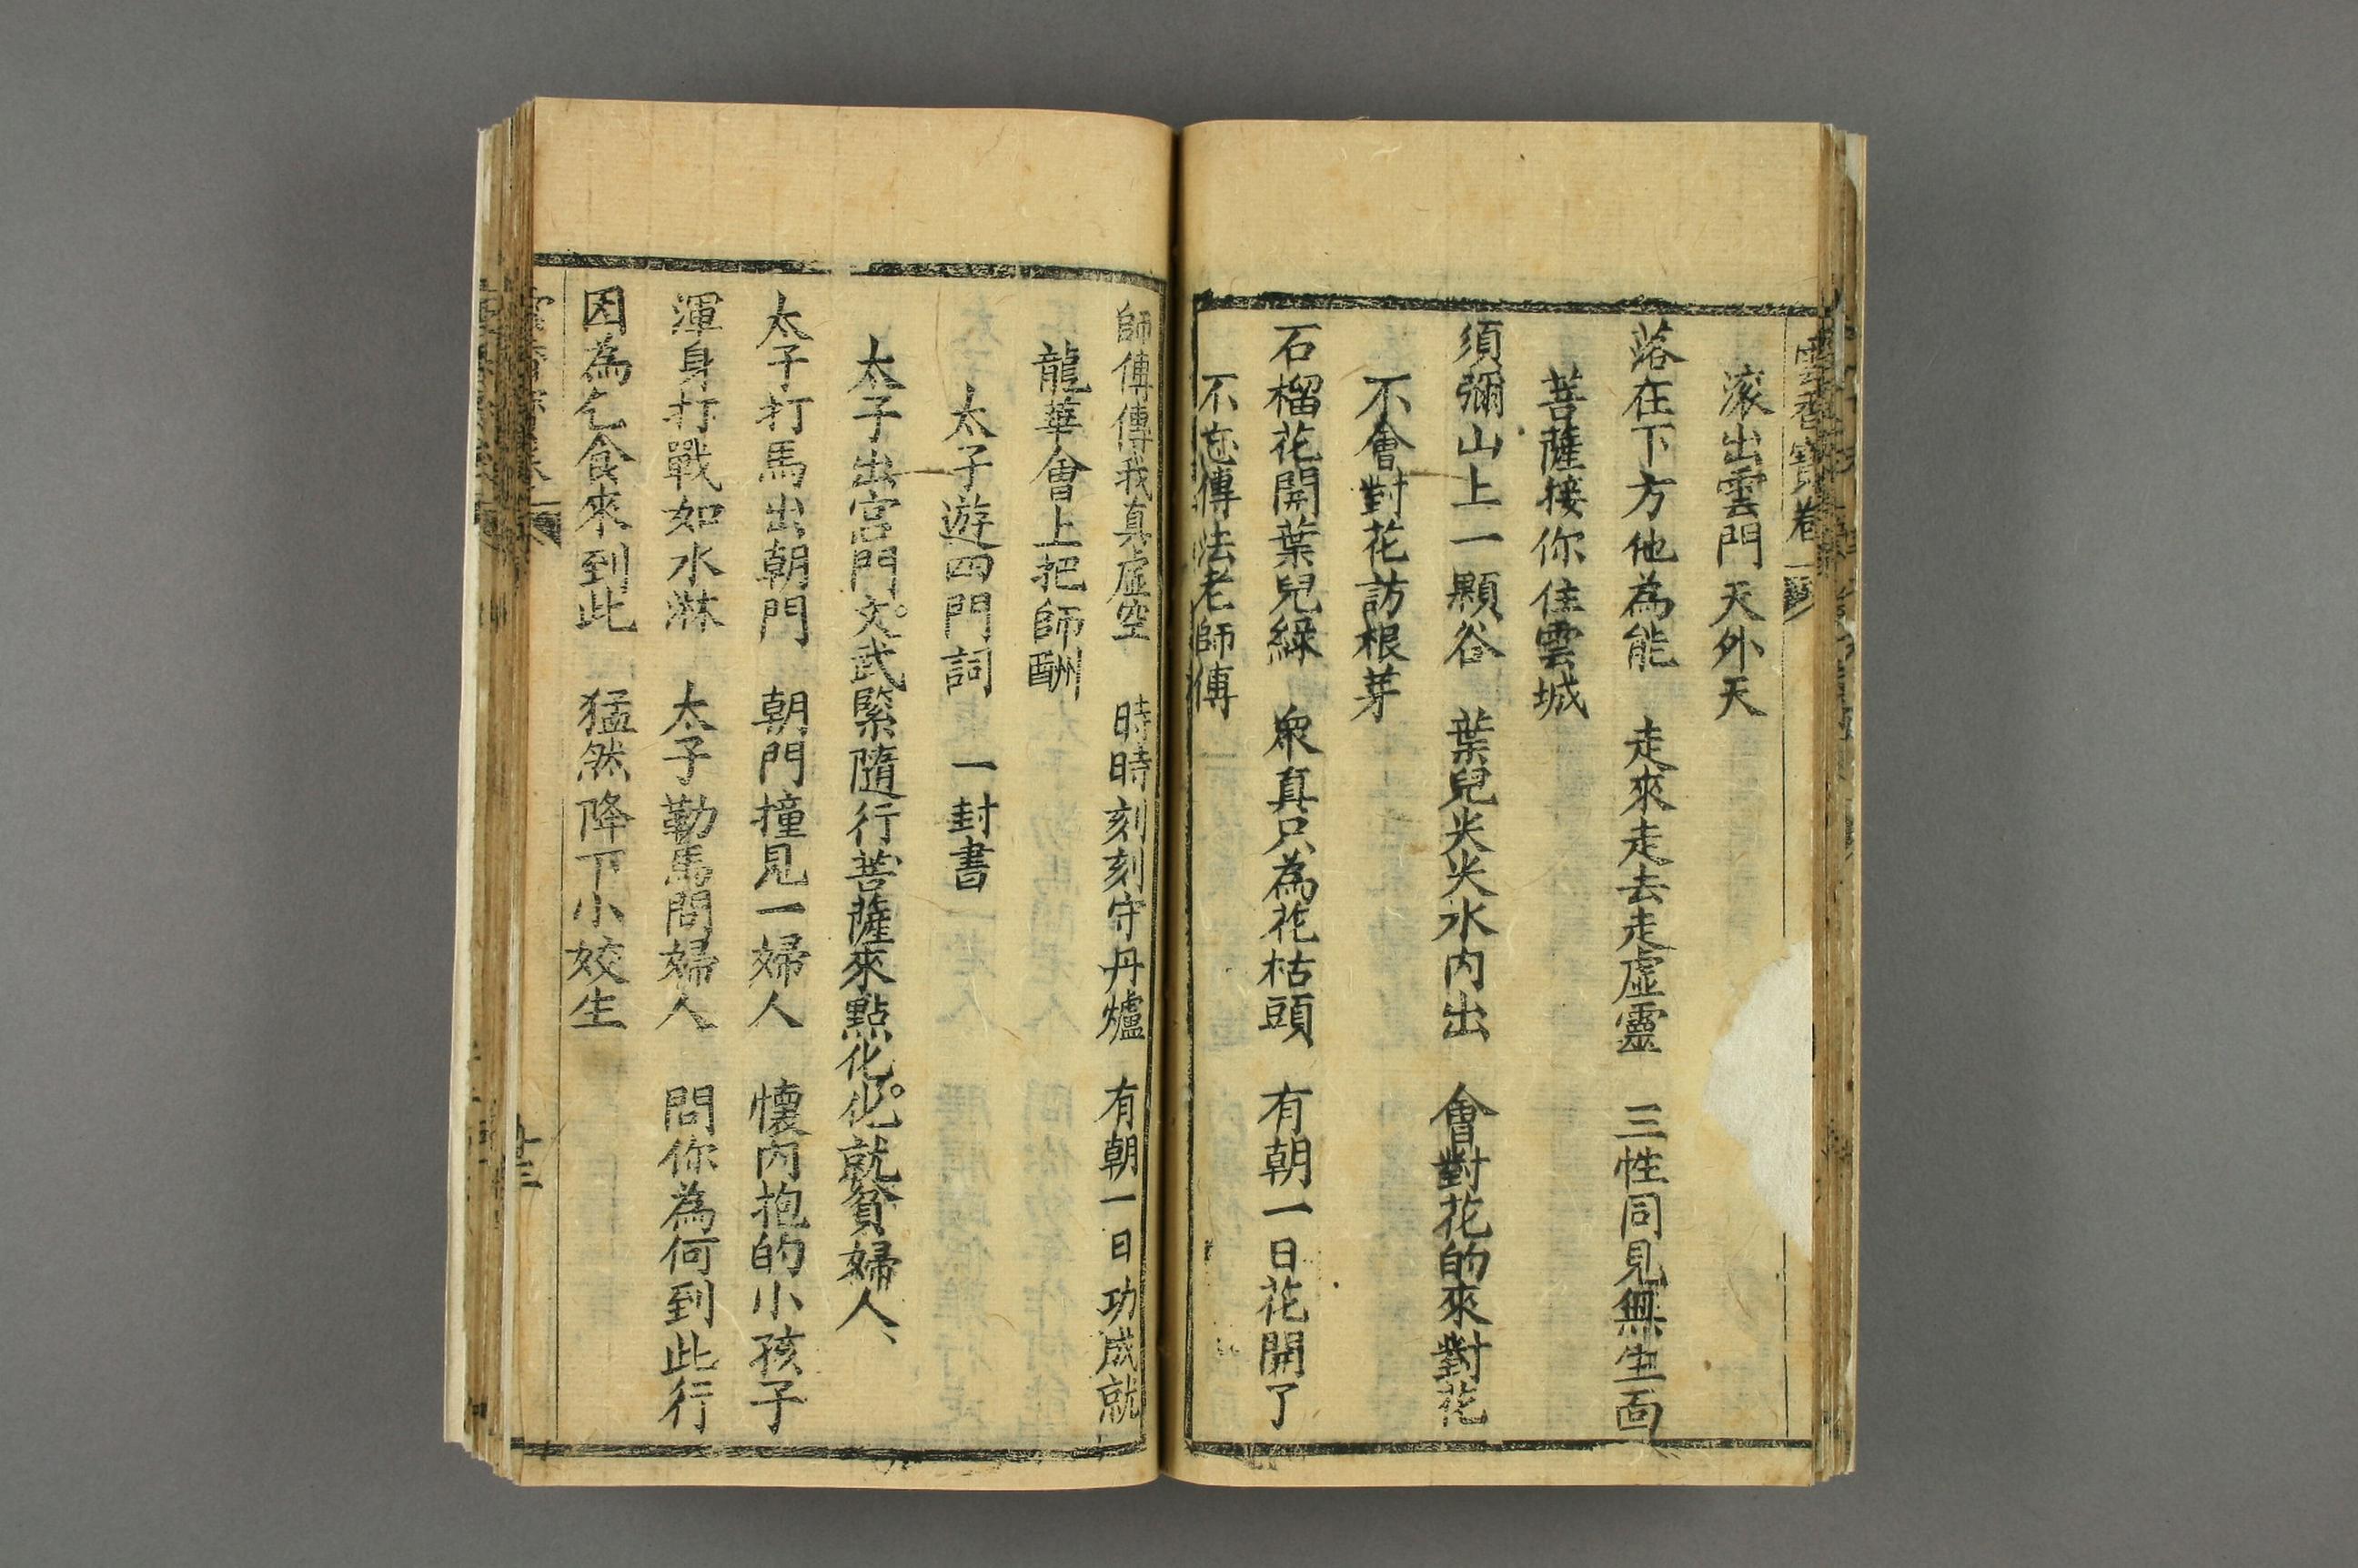 雪香寶卷
滚出雲門天外天
落在下方他為能　走來走去走虛靈　三性同見無生面
菩薩接你住雲城
須彌山上一顆谷　葉兒尖尖水内出　會對花的來對花
不會對花訪根芽
石榴花開葉兒綠　衆真只為花枯頭　有朝一日花開了
不忘傳法老師傅
師傅傳我真虛空　時時刻刻守丹爐　有朝一日功成就
龍華會上把師酬
太子遊四門詞　一封書
太子出宮門。文武緊隨行菩薩來點化。化就貧婦人、
太子打馬出朝門　朝門撞見一婦人　懷内抱的小孩子
渾身打戰如水淋　太子勒馬問婦人　問你為何到此行
因為乞食來到此　猛然降下小姣生